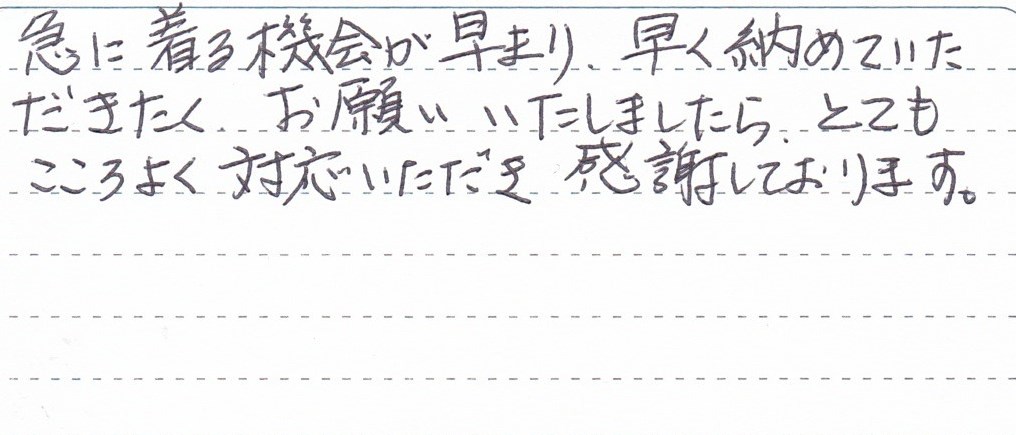 急に着る機会が早まり、早く納めていた
だきたく、お願いいたしましたら、とても
こころよく対応いただき感謝しております。